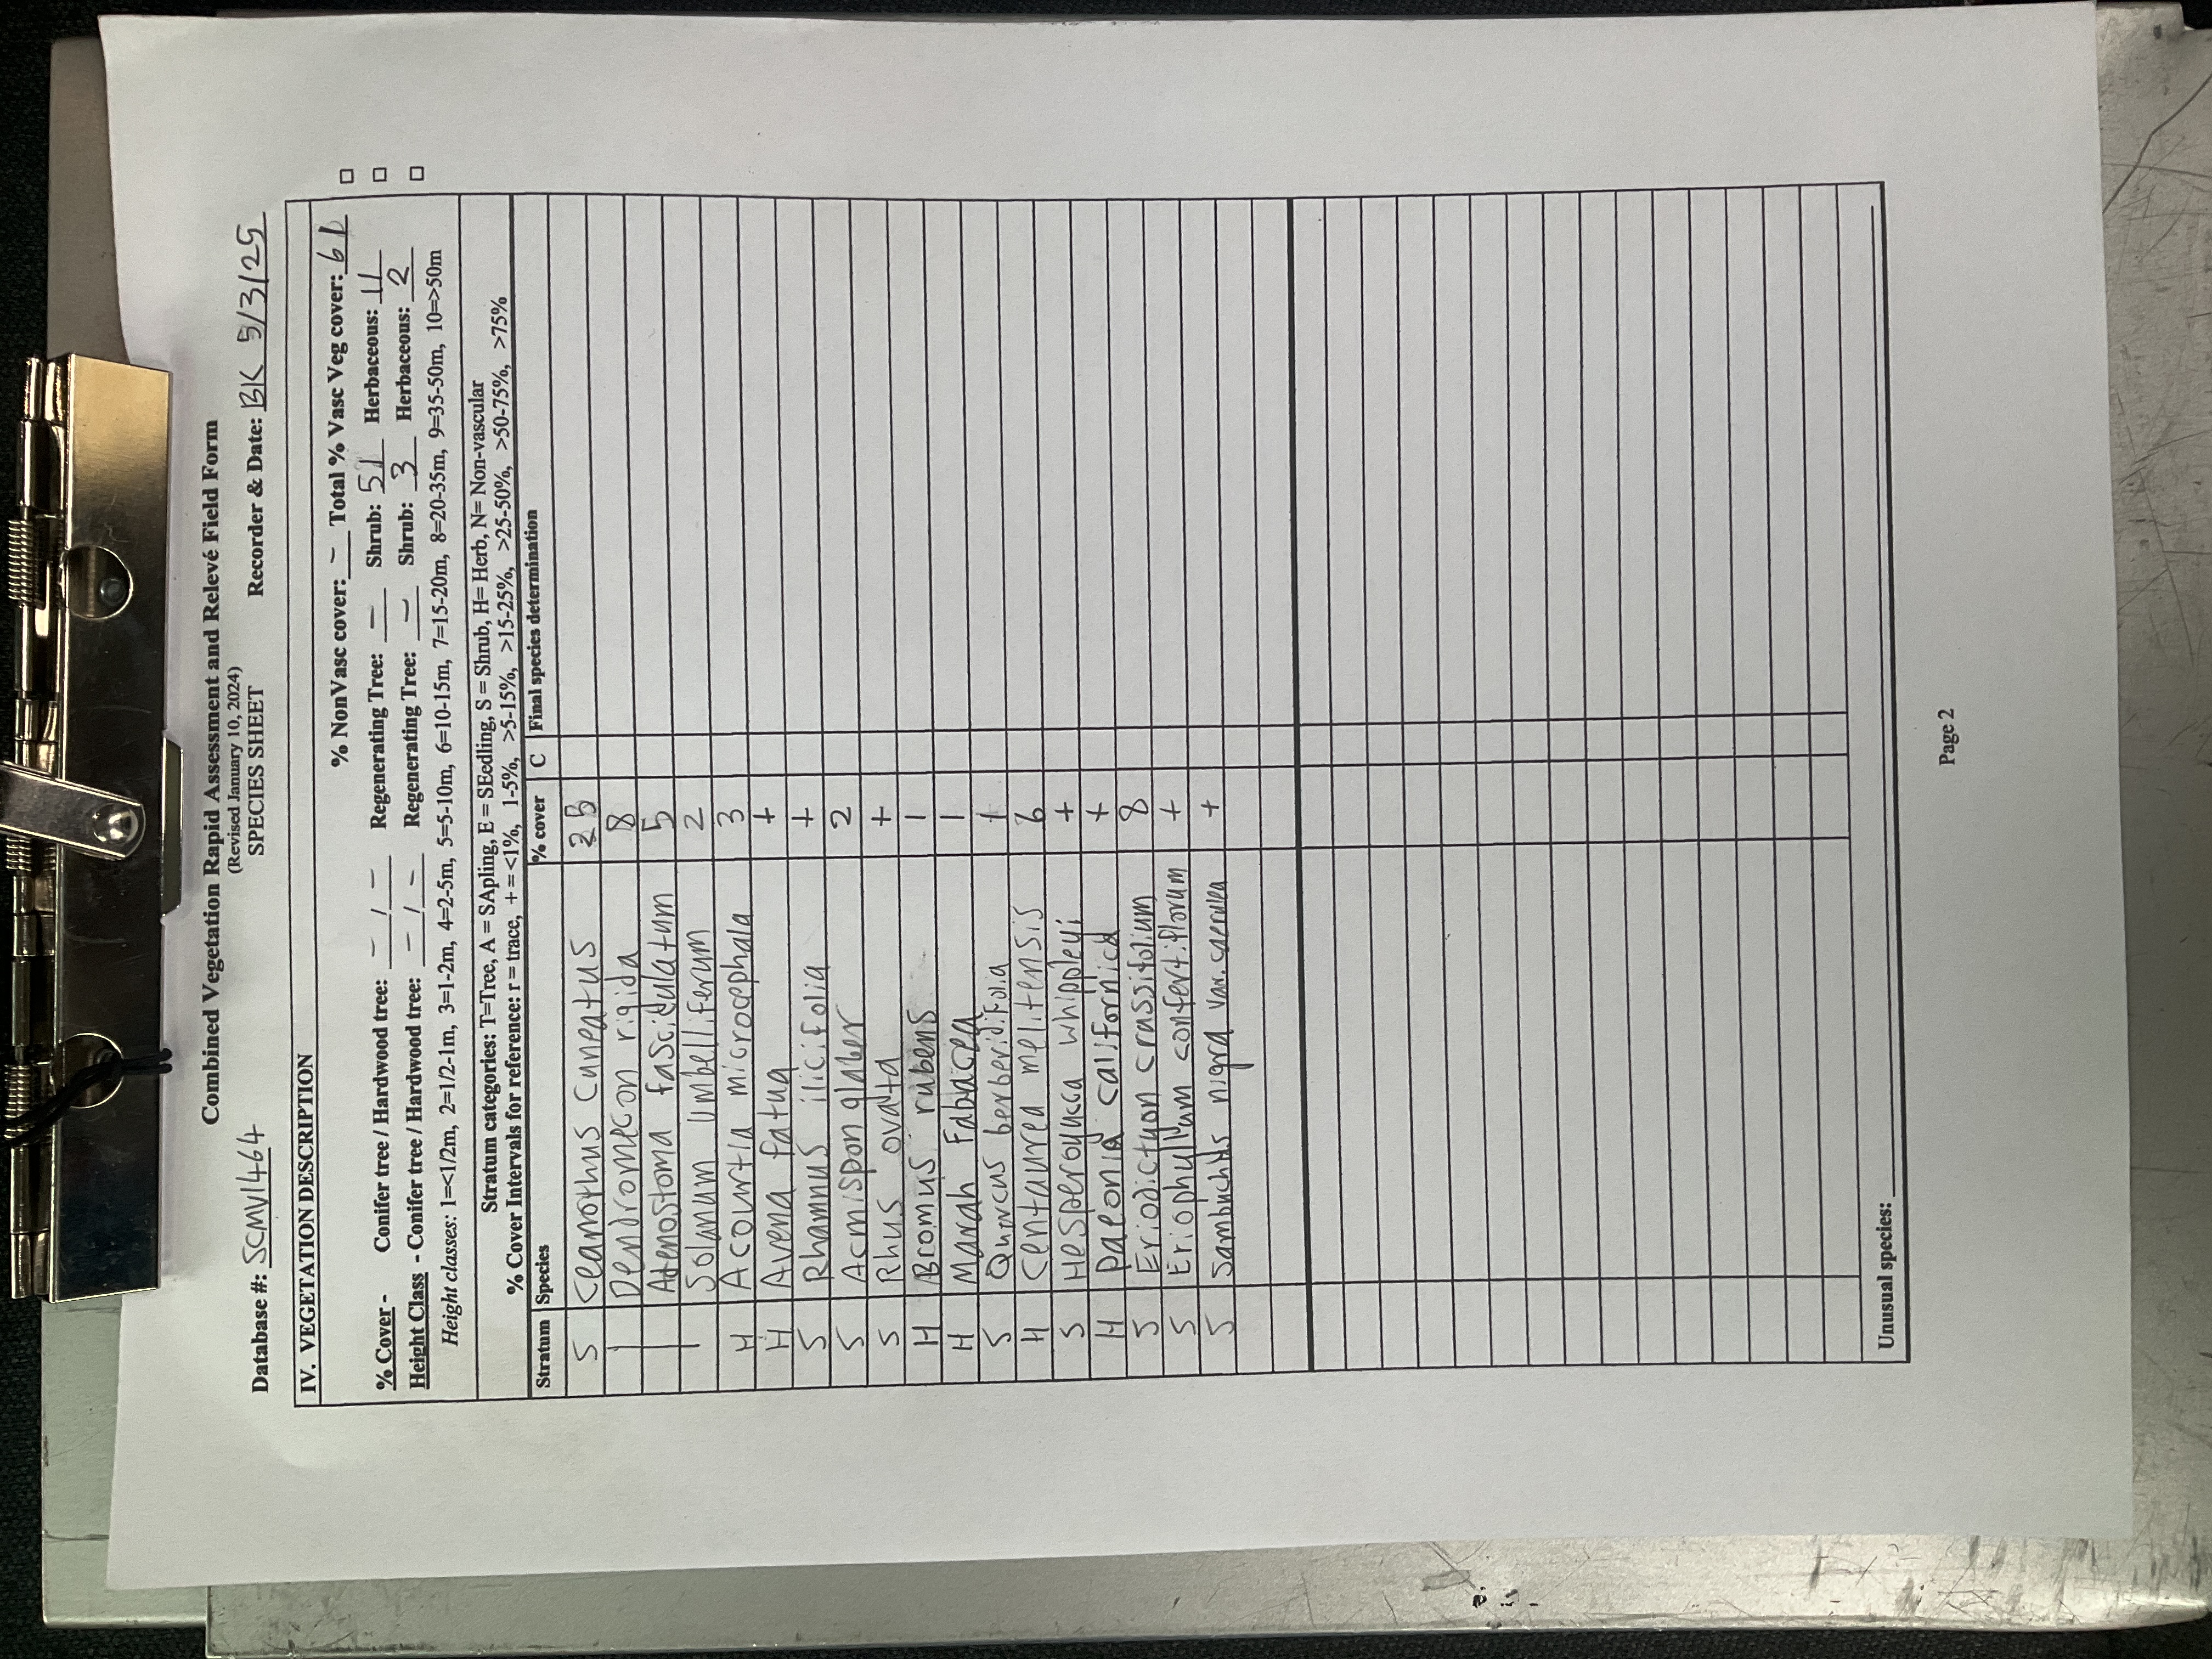 Combined Vegetation Rapid Assessment and Relevé Field Form
(Revised January 10, 2024)
SPECIES SHEET
Database #: SCMV1464 Recorder & Date: BK 5/3/25
IV. VEGETATION DESCRIPTION
% NonVasc cover: – Total % Vasc Veg cover: 61
% Cover - Conifer tree / Hardwood tree: – / – Regenerating Tree: – Shrub: 51 Herbaceous: 11
Height Class - Conifer tree / Hardwood tree: – / – Regenerating Tree: – Shrub: 3 Herbaceous: 2
Height classes: 1=<1/2m, 2=1/2-1m, 3=1-2m, 4=2-5m, 5=5-10m, 6=10-15m, 7=15-20m, 8=20-35m, 9=35-50m, 10=>50m
Stratum categories: T=Tree, A = SApling, E = SEedling, S = Shrub, H= Herb, N= Non-vascular
% Cover Intervals for reference: r = trace, + = <1%, 1-5%, >5-15%, >15-25%, >25-50%, >50-75%, >75%
Stratum Species % cover C Final species determination
S Ceanothus cuneatus
| Dendromecon rigida 8
| Adenostoma fasciculatum 5
| Solanum umbelliferum 2
H Acourtia microcephala 3
H Avena fatua +
S Rhamnus ilicifolia +
S Acmispon glaber 2
S Rhus ovata +
H Bromus rubens 1
H Marah Fabacea 1
S Quercus berberidifolia +
H Centaurea melitensis 6
S Hesperoyucca whipplei +
H Paeonia californica +
S Eriodictyon crassifolium 8
S Eriophyllum confertiflorum +
S nigra var. caerulea +
Unusual species:
Page 2